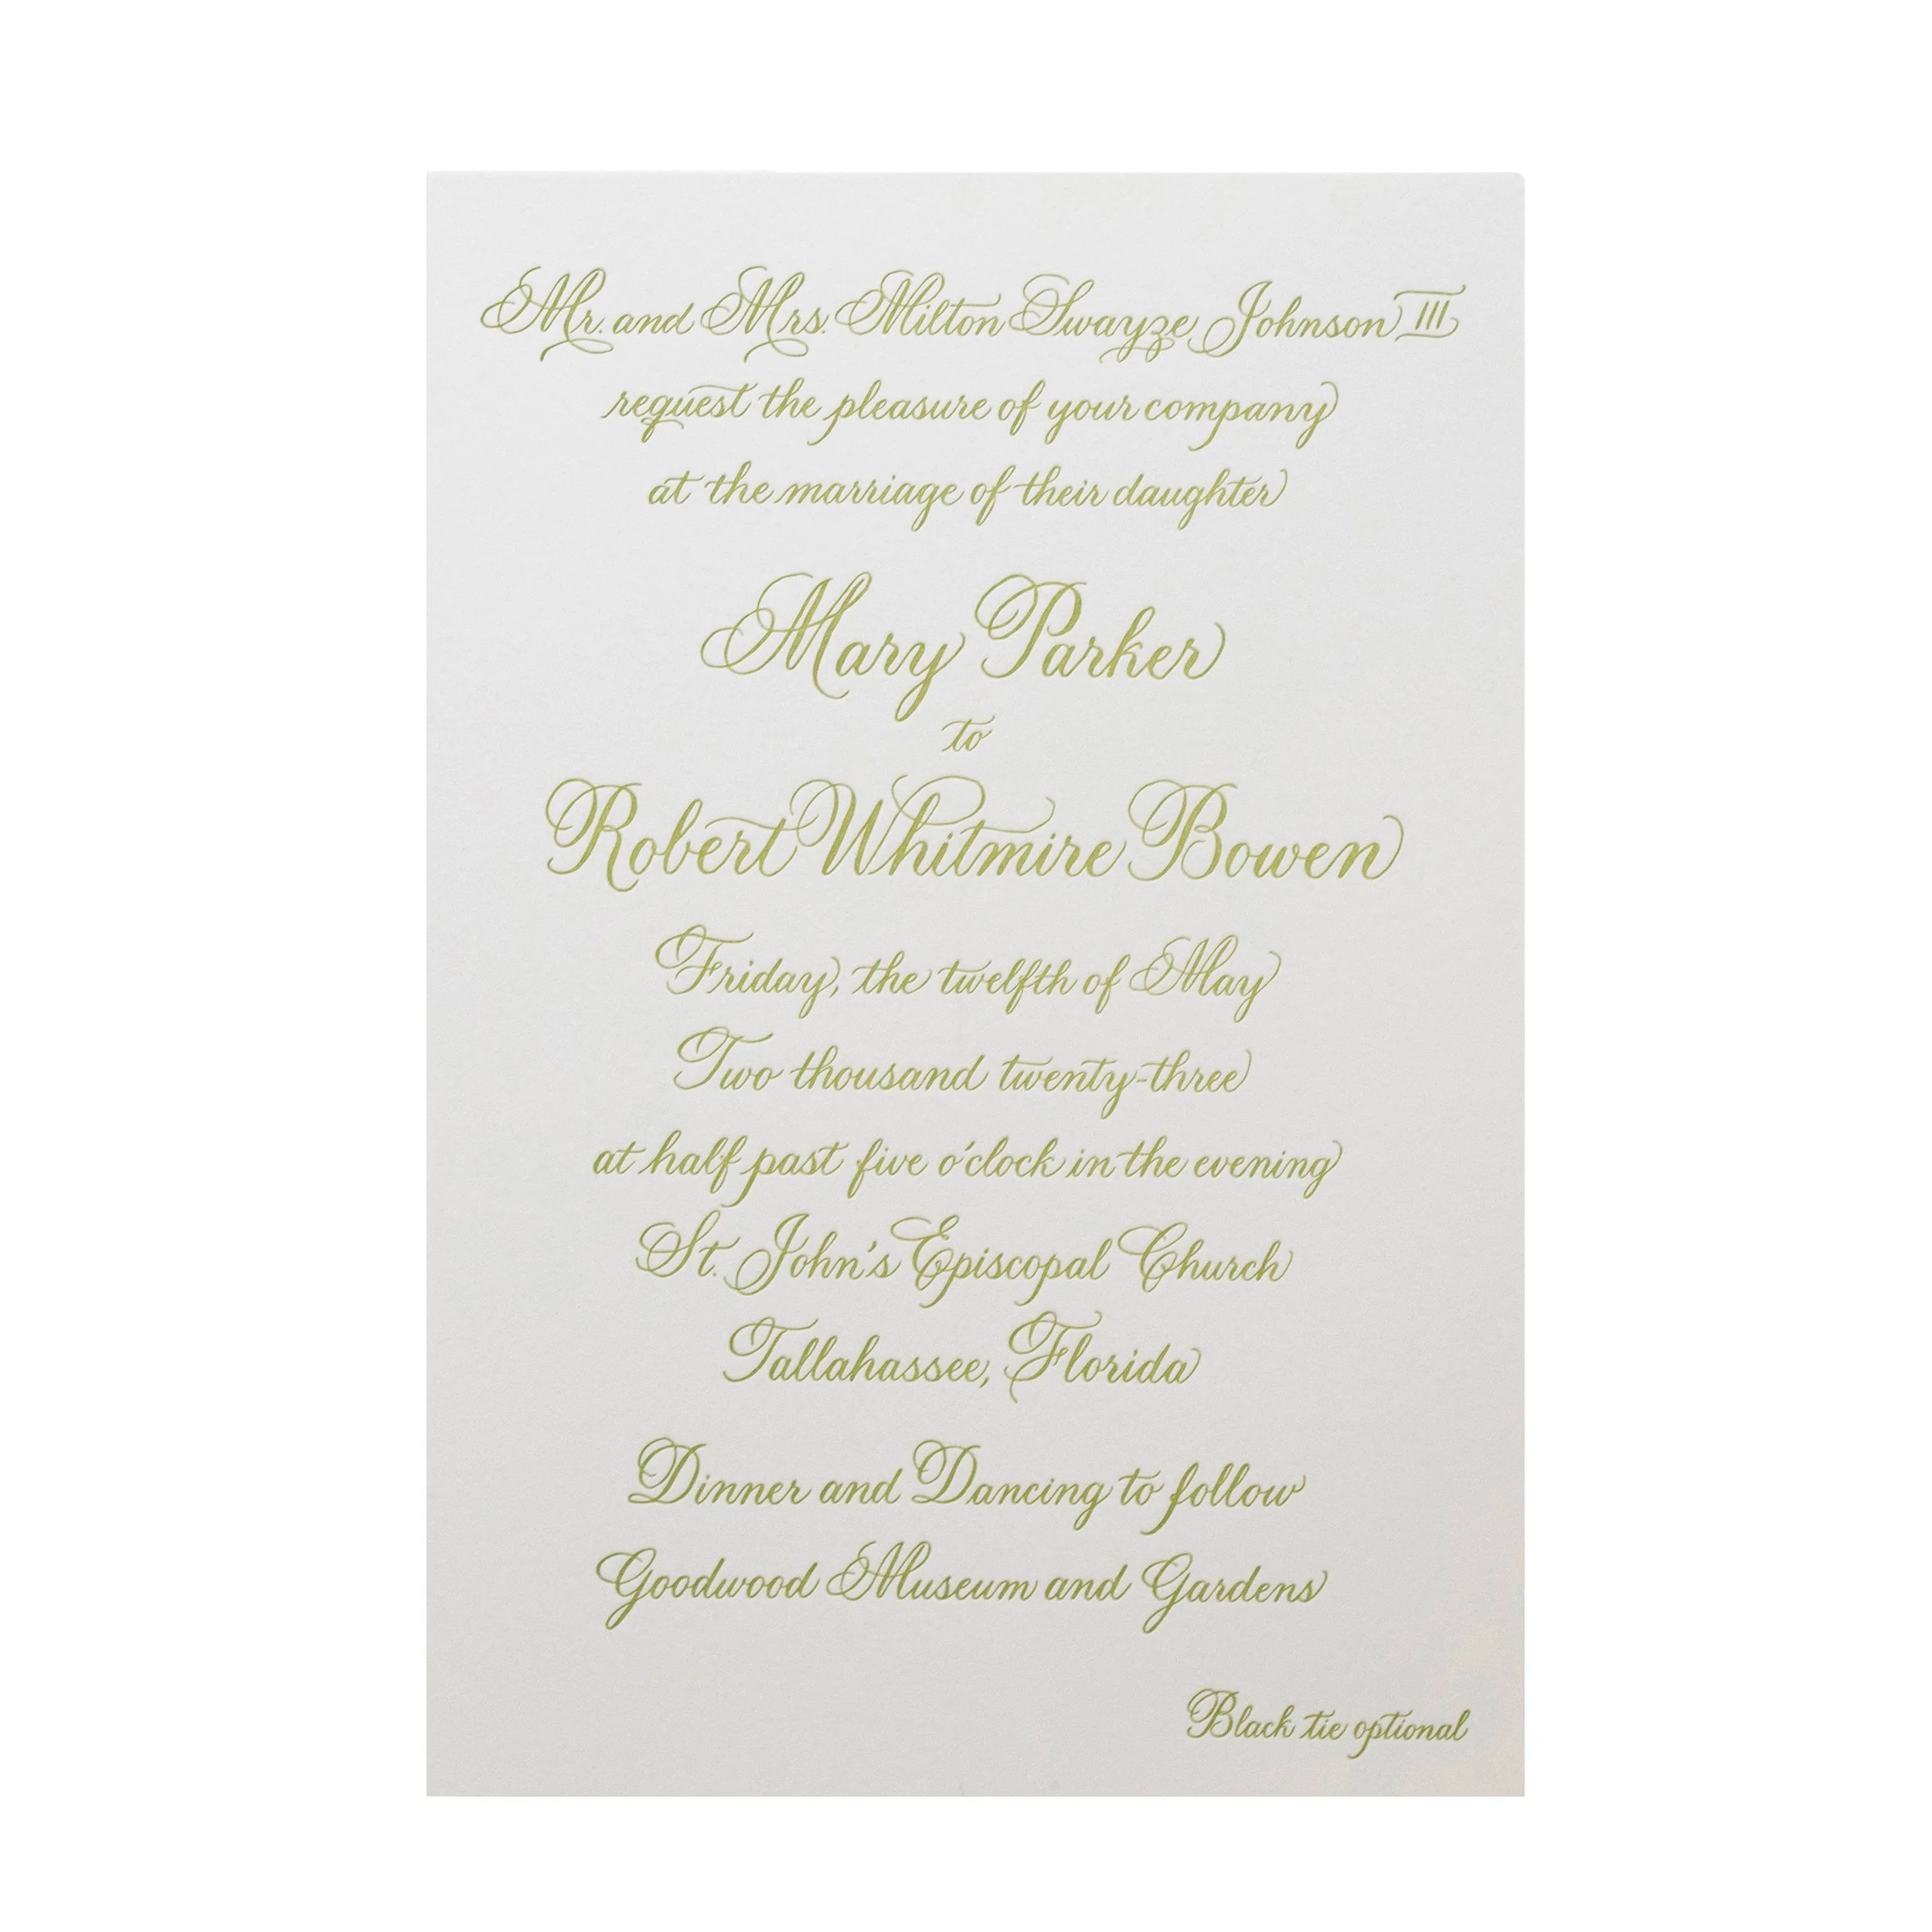 Mr. and Mrs. Milton Swayze Johnson III
request the pleasure of your company
at the marriage of their daughter
Mary Parker
to
Robert Whitmire Bowen
Friday, the twelfth of May
Two thousand twenty-three
at half past five o'clock in the evening
St. John's Episcopal Church
Tallahassee, Florida
Dinner and Dancing to follow
Goodwood Museum and Gardens
Black tie optional